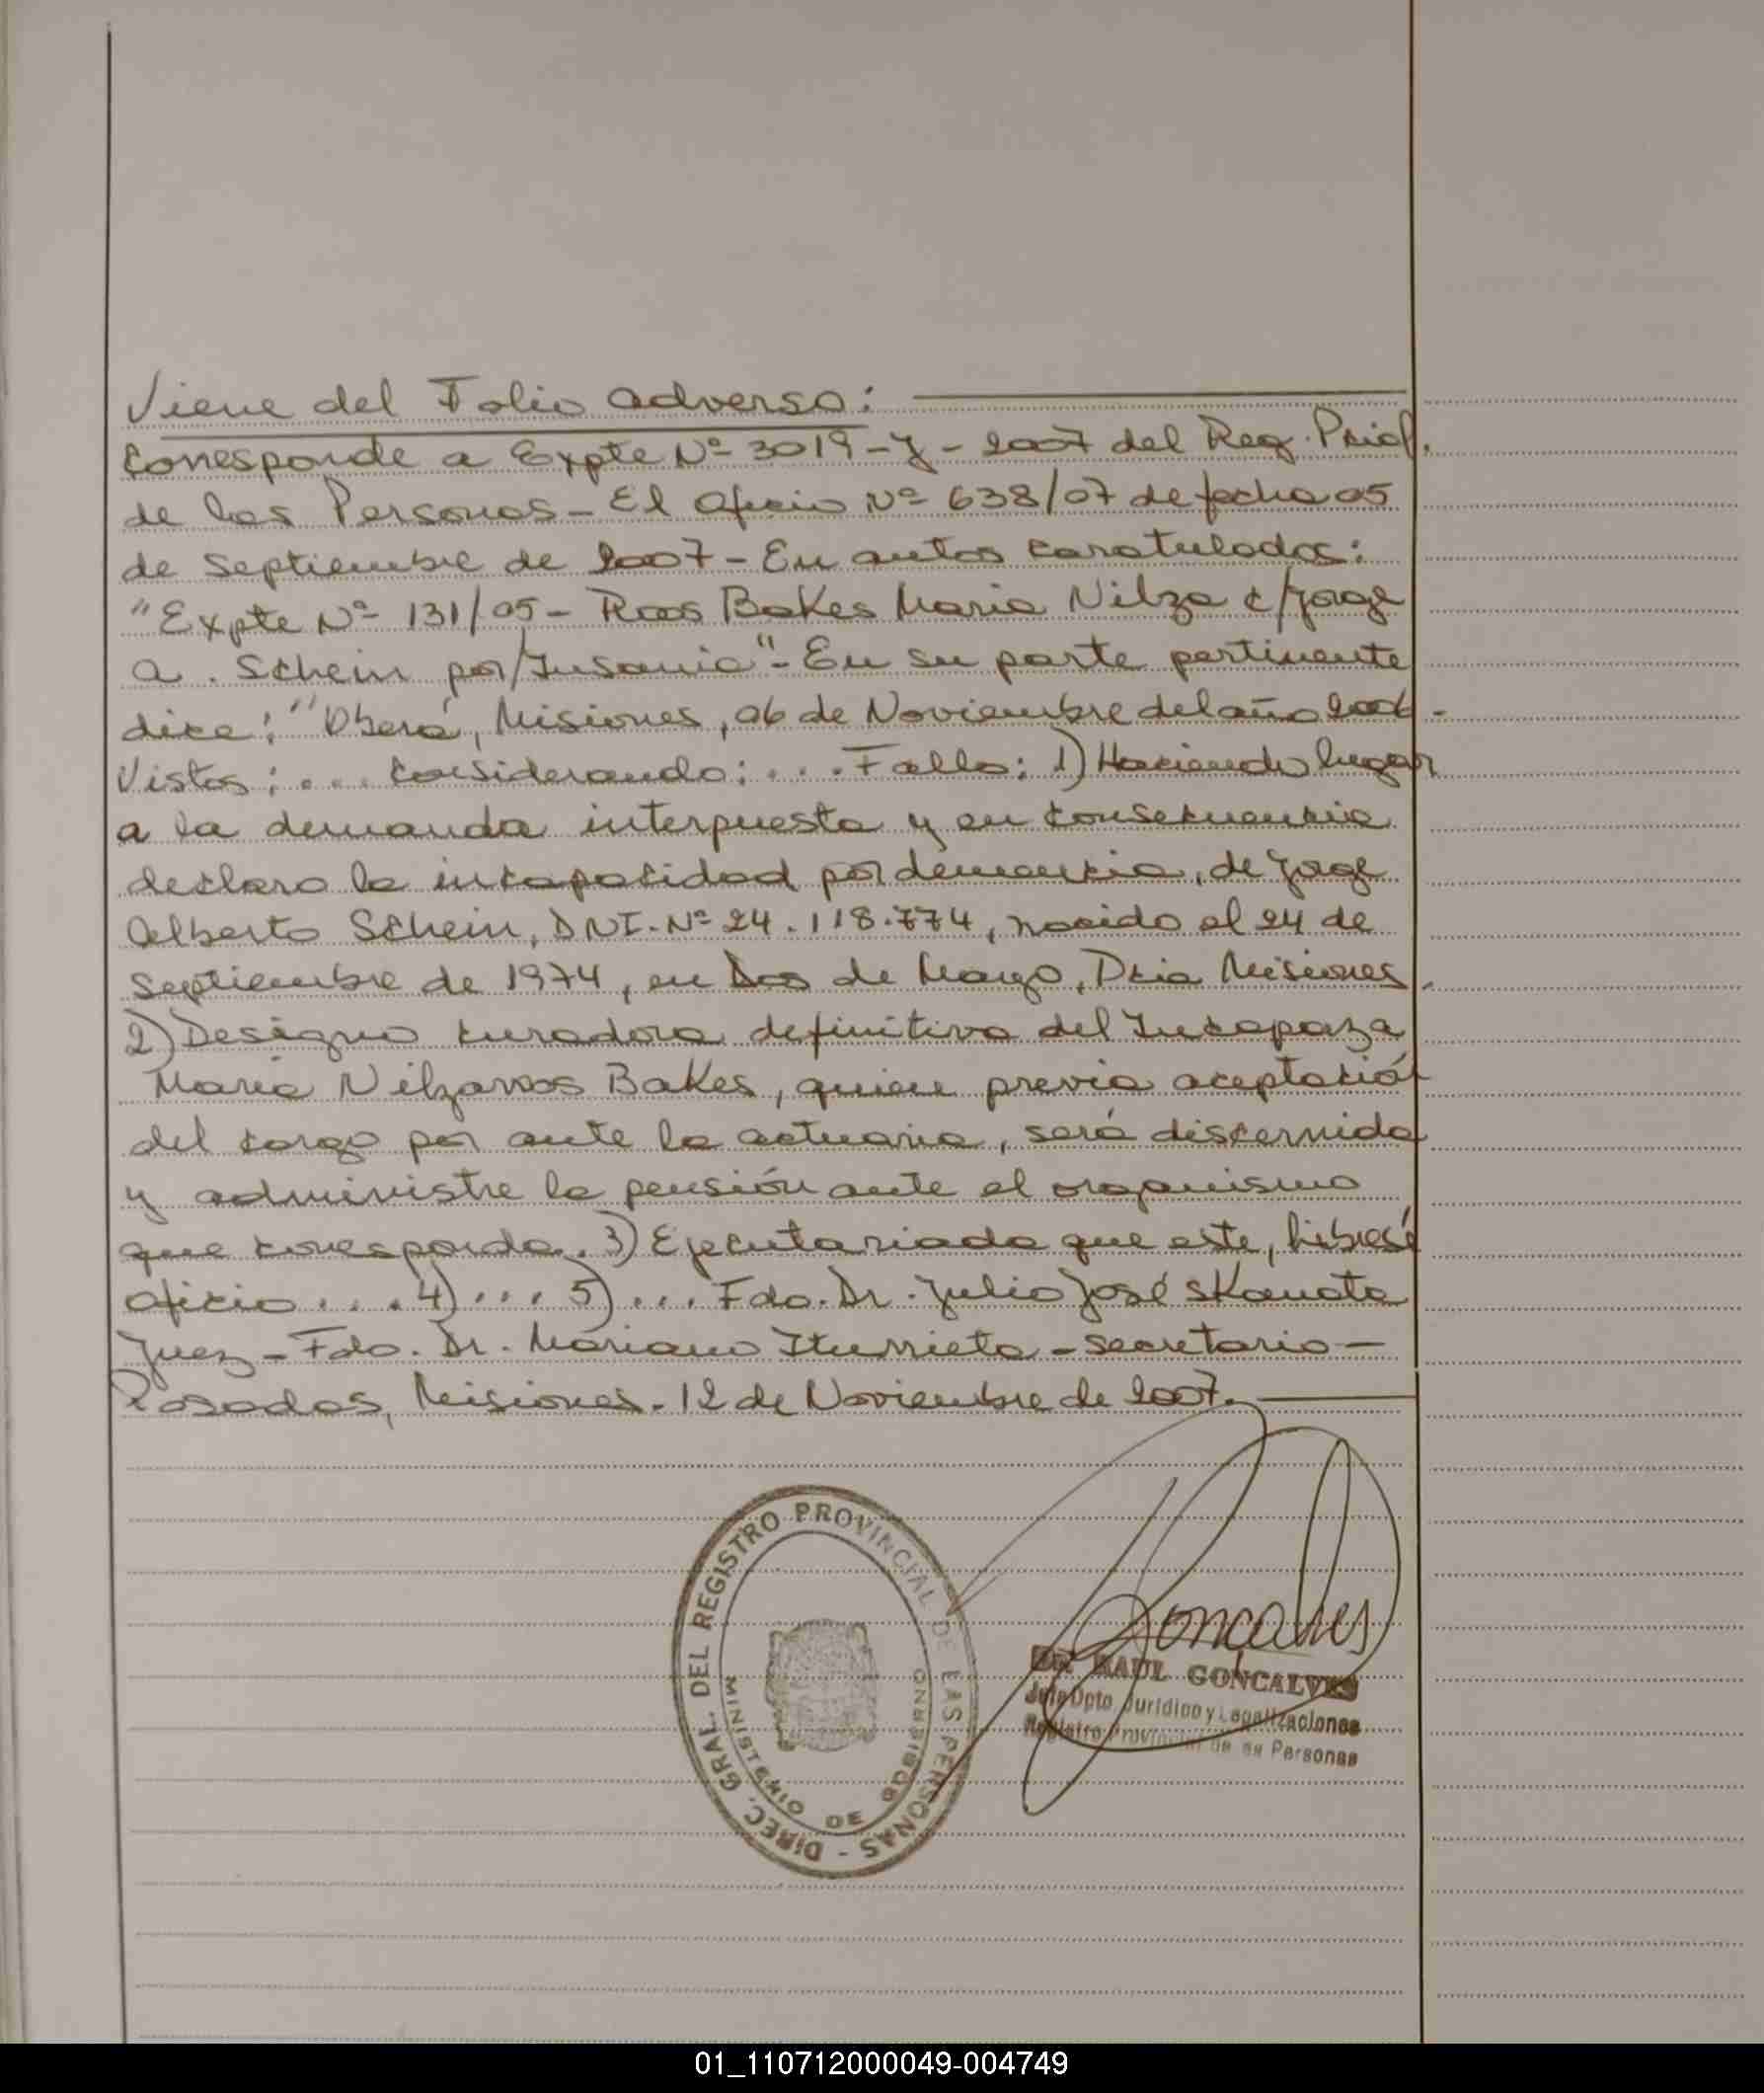 Viene del Folio adverso:
Corresponde a Expte Nº 3019-J-2007 del Reg. Pcial.
de las Personas - El Oficio Nº 638/07 de fecha 05
de Septiembre de 2007 - En autos caratulados:
"Expte Nº 131/05 - Ros Bakes Maria Nilza c/Jorge
A. Schein por/Insania" - En su parte pertinente
dice: "Oberá, Misiones, 06 de Noviembre del año 2006 -
Vistos: .... Considerando: .... Fallo: 1) Haciendo lugar
a la demanda interpuesta y en consecuencia
declaro la incapacidad por demencia, de Jorge
Alberto Schein, DNI. Nº 24.118.774, nacido el 24 de
Septiembre de 1974, en Dos de Mayo, Pcia Misiones.
2) Designo curadora definitiva del Incapaz a
Maria Nilza Ros Bakes, quien previa aceptación
del cargo por ante la actuaria, será discernida
y administre la pensión ante el organismo
que corresponda. 3) Ejecutoriada que este, librese
oficio .... 4) .... 5) .... Fdo. Dr. Julio José Skanata
Juez - Fdo. Dr. Mariano Iturrieta - Secretario -
Posadas, Misiones. 12 de Noviembre de 2007.
DIREC. GRAL. DEL REGISTRO PROVINCIAL DE LAS PERSONAS -
MINISTERIO DE GOBIERNO
Goncalves
DR RAUL GONÇALVES
Jefe Dpto Jurídico y Legalizaciones
Registro Provincial de las Personas
01_110712000049-004749